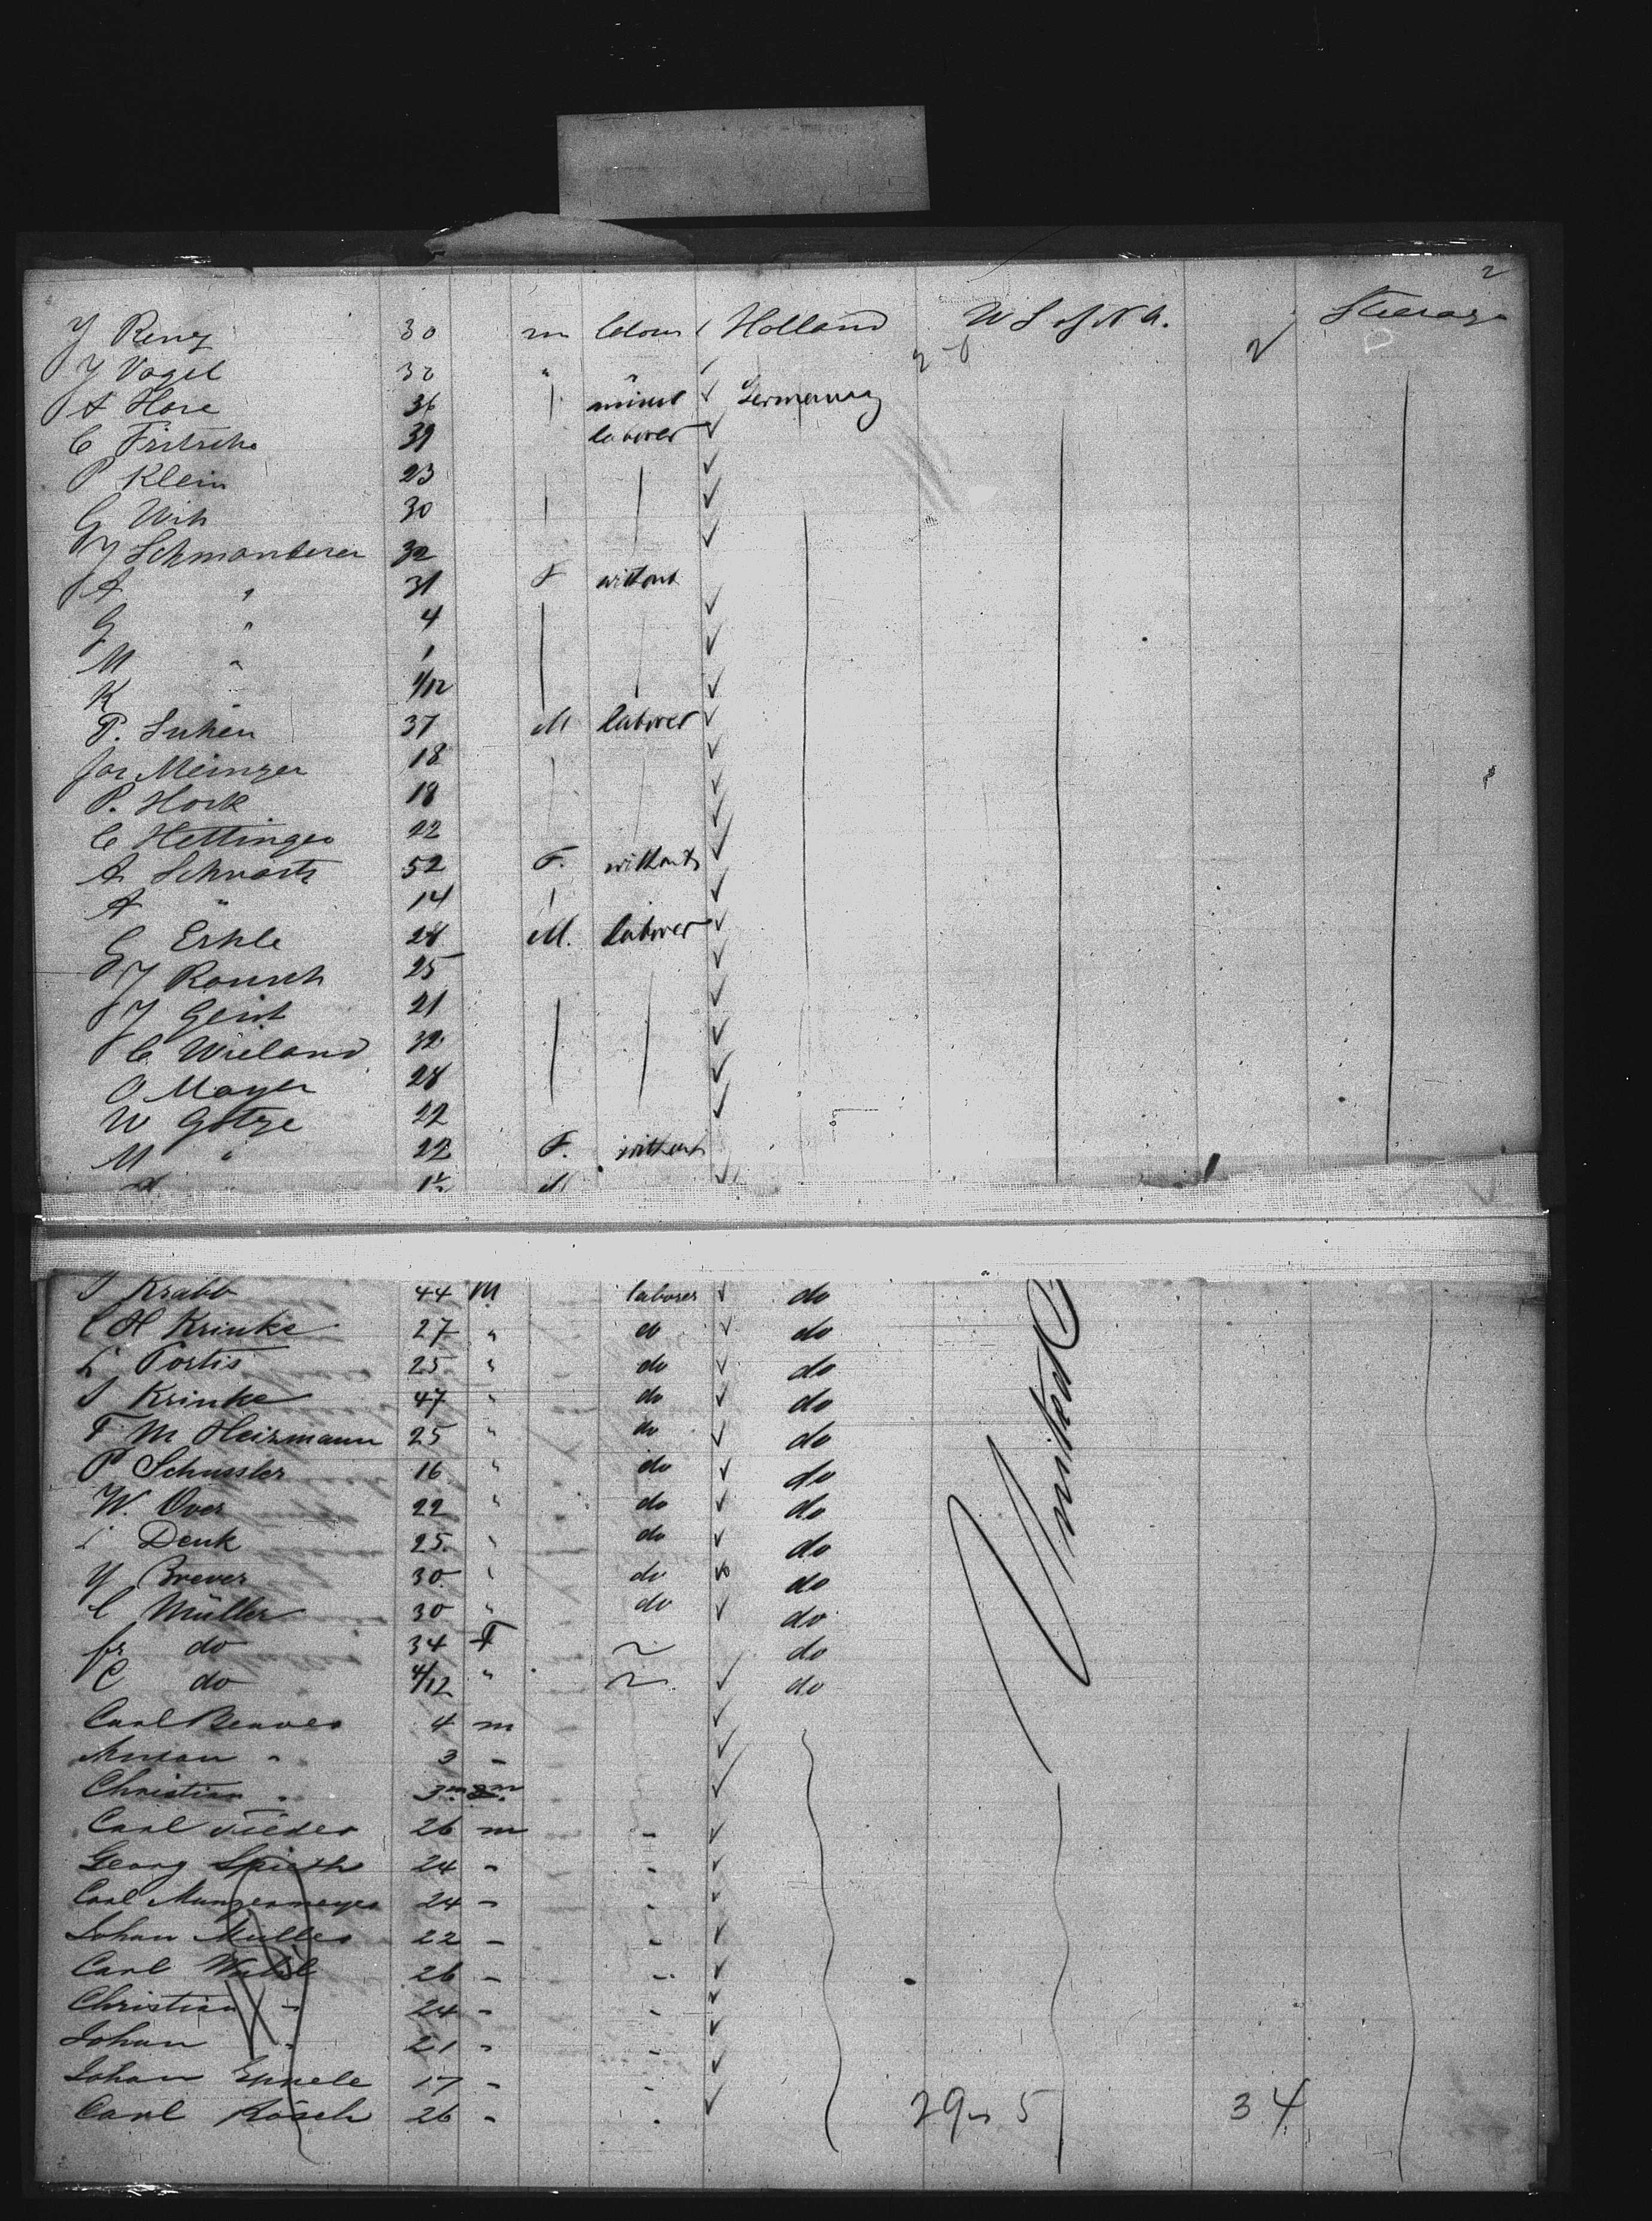 2
J Renz 30 m labour Holland U S of N A. Steerage
J Vogel 32 " "
A Hore 36 miner Germany
C Fritsche 39 laborer
P Klein 23
G 30
J Schmanderer 32
A " 31 F without
G " 4
M " 1
K 1/12
P. Suhen 37 M laborer
Jos Meinzer 18
P. Hock 18
C Hettinger 22
A Schwartz 52 F. without
A " 14
G Erhle 28 M. laborer
J Rausch 25
J Geist 21
C Wieland 32
O Mayer 28
W Götze 22
M " 22 F. without
M
Krabb 44 M laborer do
C H Krinke 27 " do do
L Portis 25 " do do
J Krinke 47 " do do
F M Heizmann 25 " do do
P Schussler 16 " do do
W. Over 22 " do do
Denk 25 " do do
Y Brever 30 " do do
C Müller 30 " do do
fr do 34 F ~ do
C do 4/12 " ~ do
United
Carl Beaver 4 m
" 3 -
Christian " 3
Carl Fieder 26 m -
Georg Spieth 24 - -
Carl Munzenmayer 24 - -
Johan Muller 22 - -
Carl 26 - -
Christian - 24 - -
Johan " 21 - -
Johan Eppele 17 - -
Carl Rösch 26 - - 29 5 34